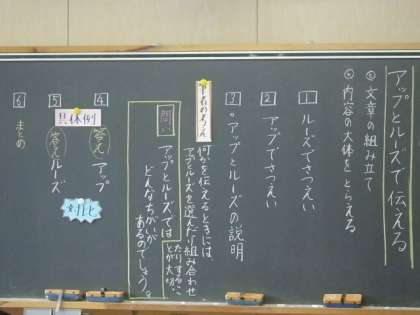 アップとルーズで伝える
◎文章の組み立て
◎内容の大体をとらえる
1 ルーズでさつえい
2 アップでさつえい
3 アップとルーズの説明
筆者の考え
何かを伝えるときには、
アップとルーズを選んだり組み合わせ
たりすることが大切
問い
アップとルーズでは
どんなちがいが
あるのでしょう。
具体例
4 答え アップ
5 答え ルーズ
対比
6 まとめ